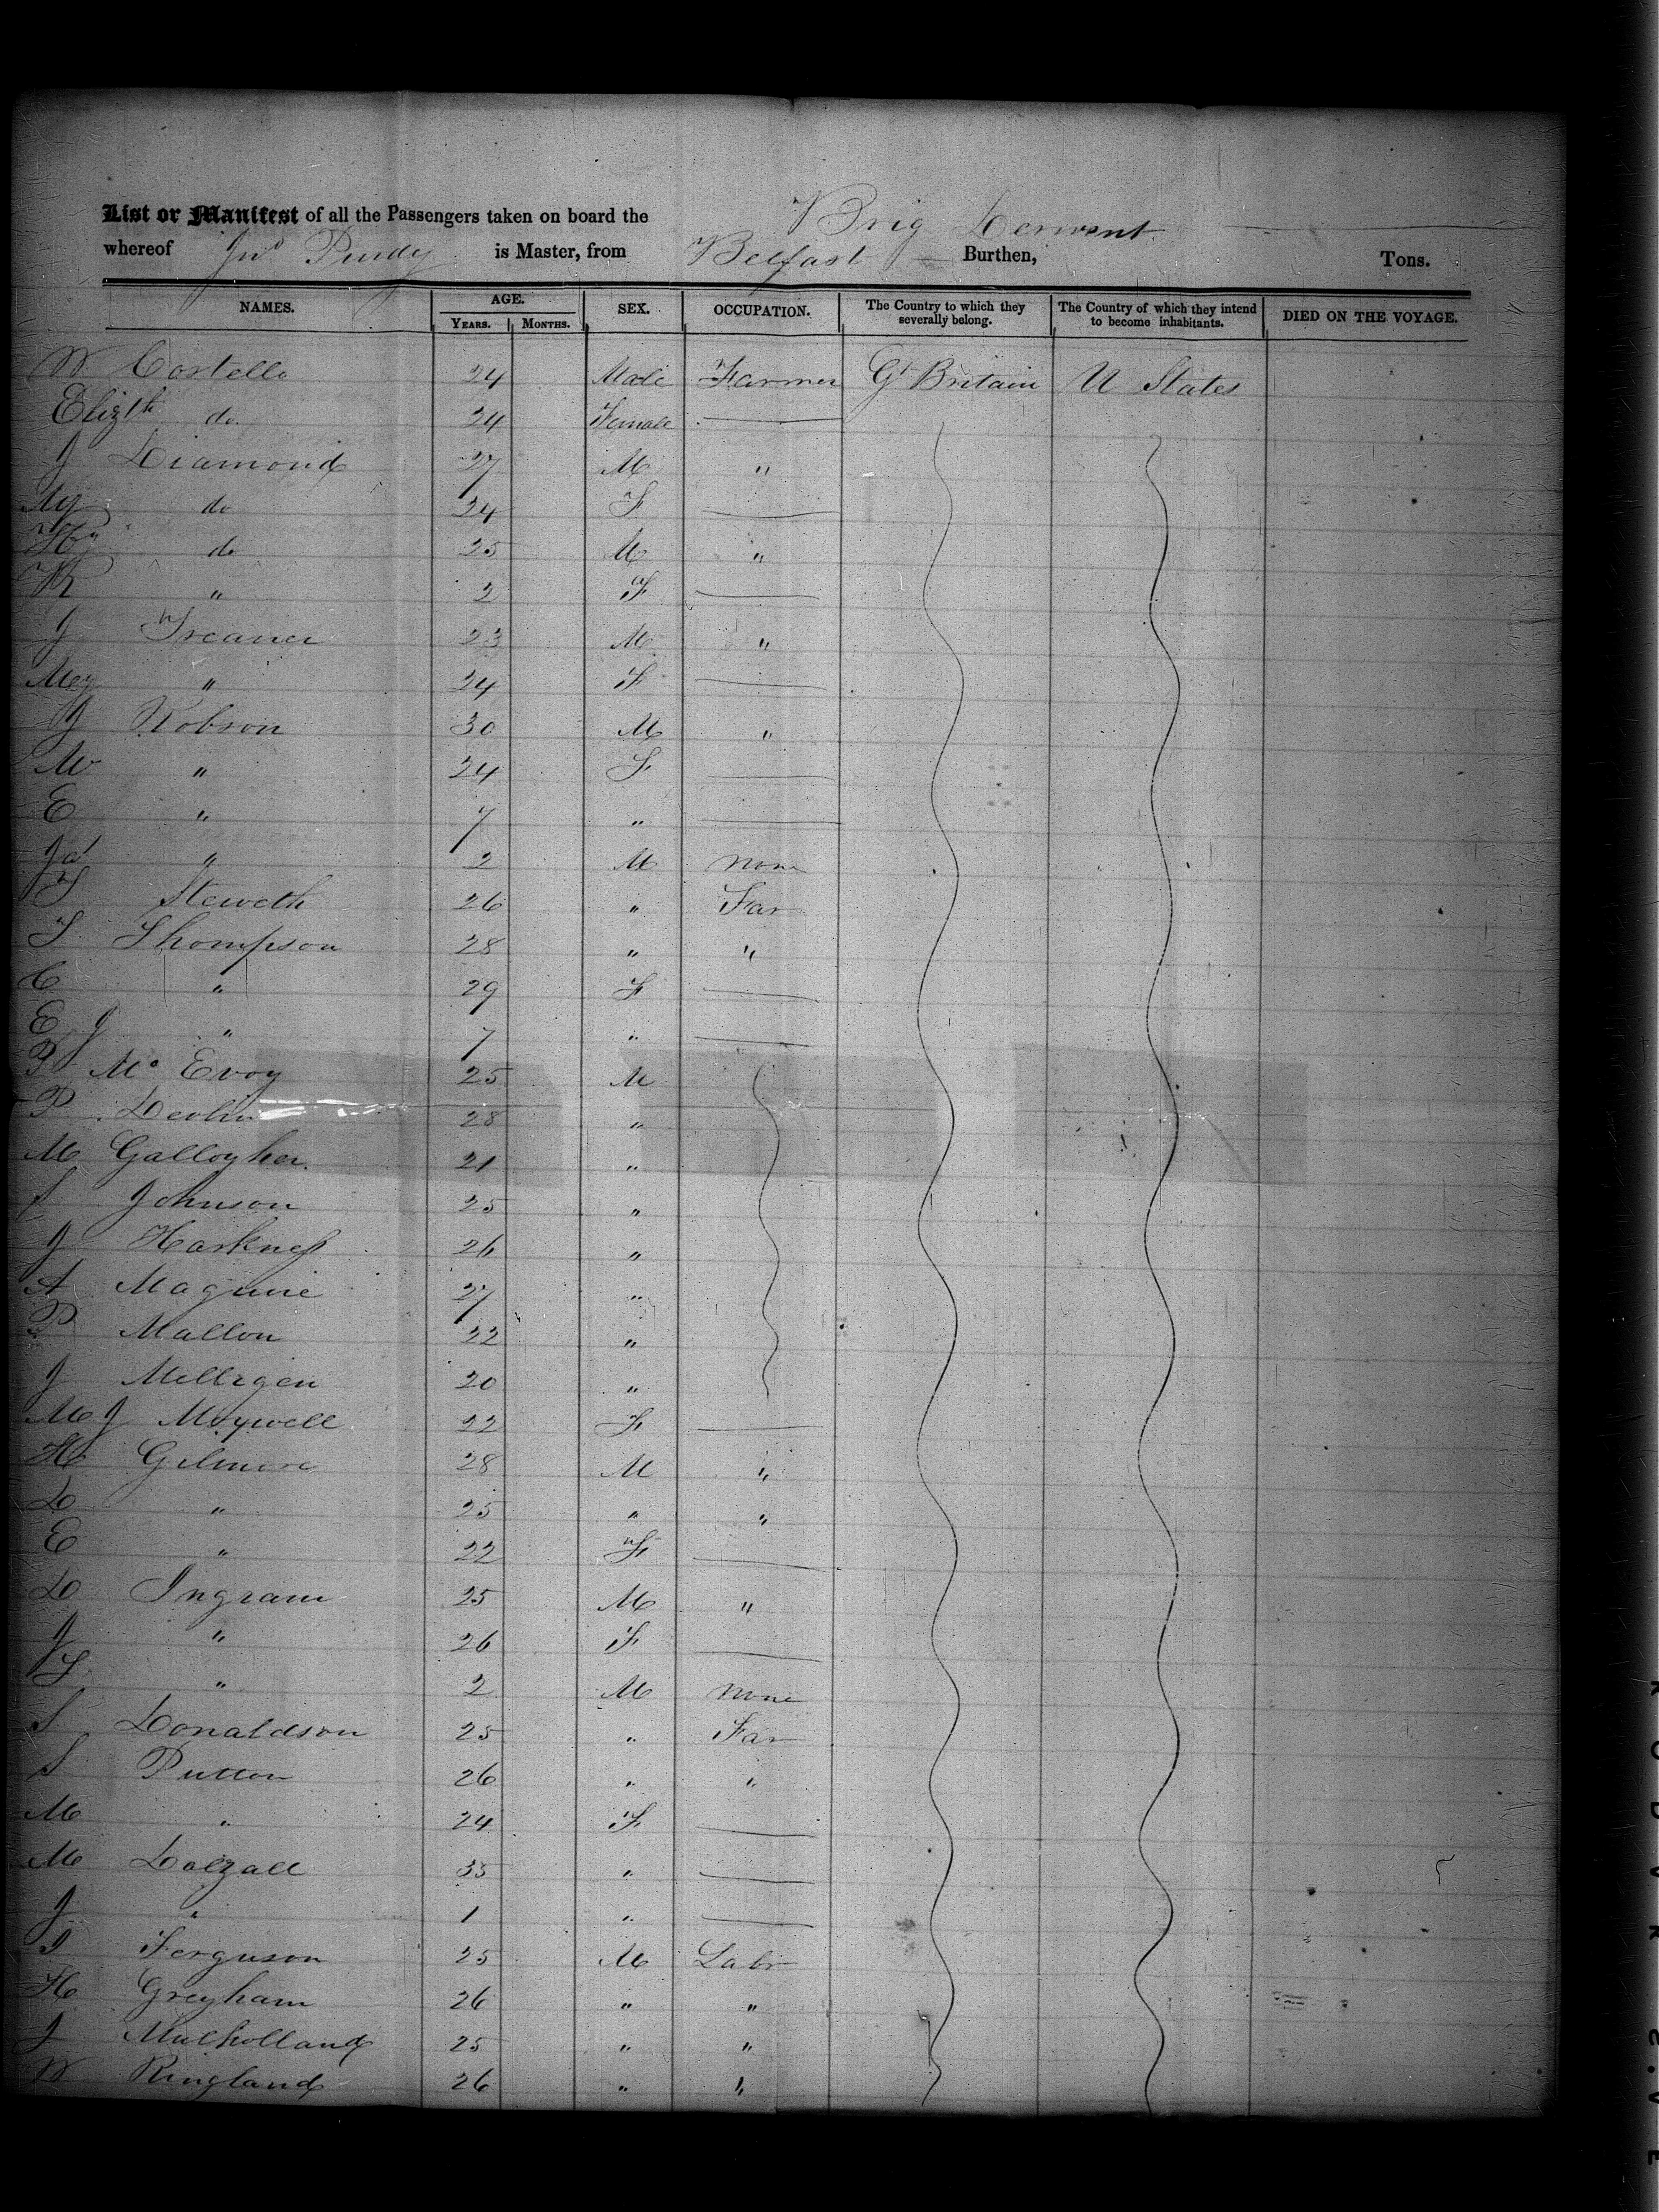 List or Manifest of all the Passengers taken on board the Brig Derwent
whereof Jno Purdy is Master, from Belfast Burthen, Tons.
NAMES. AGE. SEX. OCCUPATION. The Country to which they severally belong. The Country of which they intend to become inhabitants. DIED ON THE VOYAGE.
YEARS. MONTHS.
W Costello 24 Male Farmer Gt Britain U States
Elizth do 24 Female
J Diamond 27 M "
My do 24 F
Hy do 25 M "
" 2 F
J Treanor 23 M "
Mey " 24 F
J Robson 30 M "
M " 24 F
E " 7 "
Jas " 2 M none
T Steweth 26 " Far
T Thompson 28 " "
C " 29 F
E J " 7 "
P Mc Evoy 25 M
P Devlin 28 "
M Gallogher 21 "
S Johnson 25 "
J Harkness 26 "
A Maguire 27 "
P Mallon 22 "
J Millegen 20 "
M J Maxwell 22 F
H Gilmore 28 M "
D " 25 " "
E " 22 F
D Ingram 25 M "
J " 26 F
T " 2 M none
S Donaldson 25 " Far
S Putton 26 " "
M " 24 F
M Dalzall 35 "
J " 1 "
Ferguson 25 M Labr
H Greyham 26 " "
J Mulholland 25 " "
W Ringland 26 " "